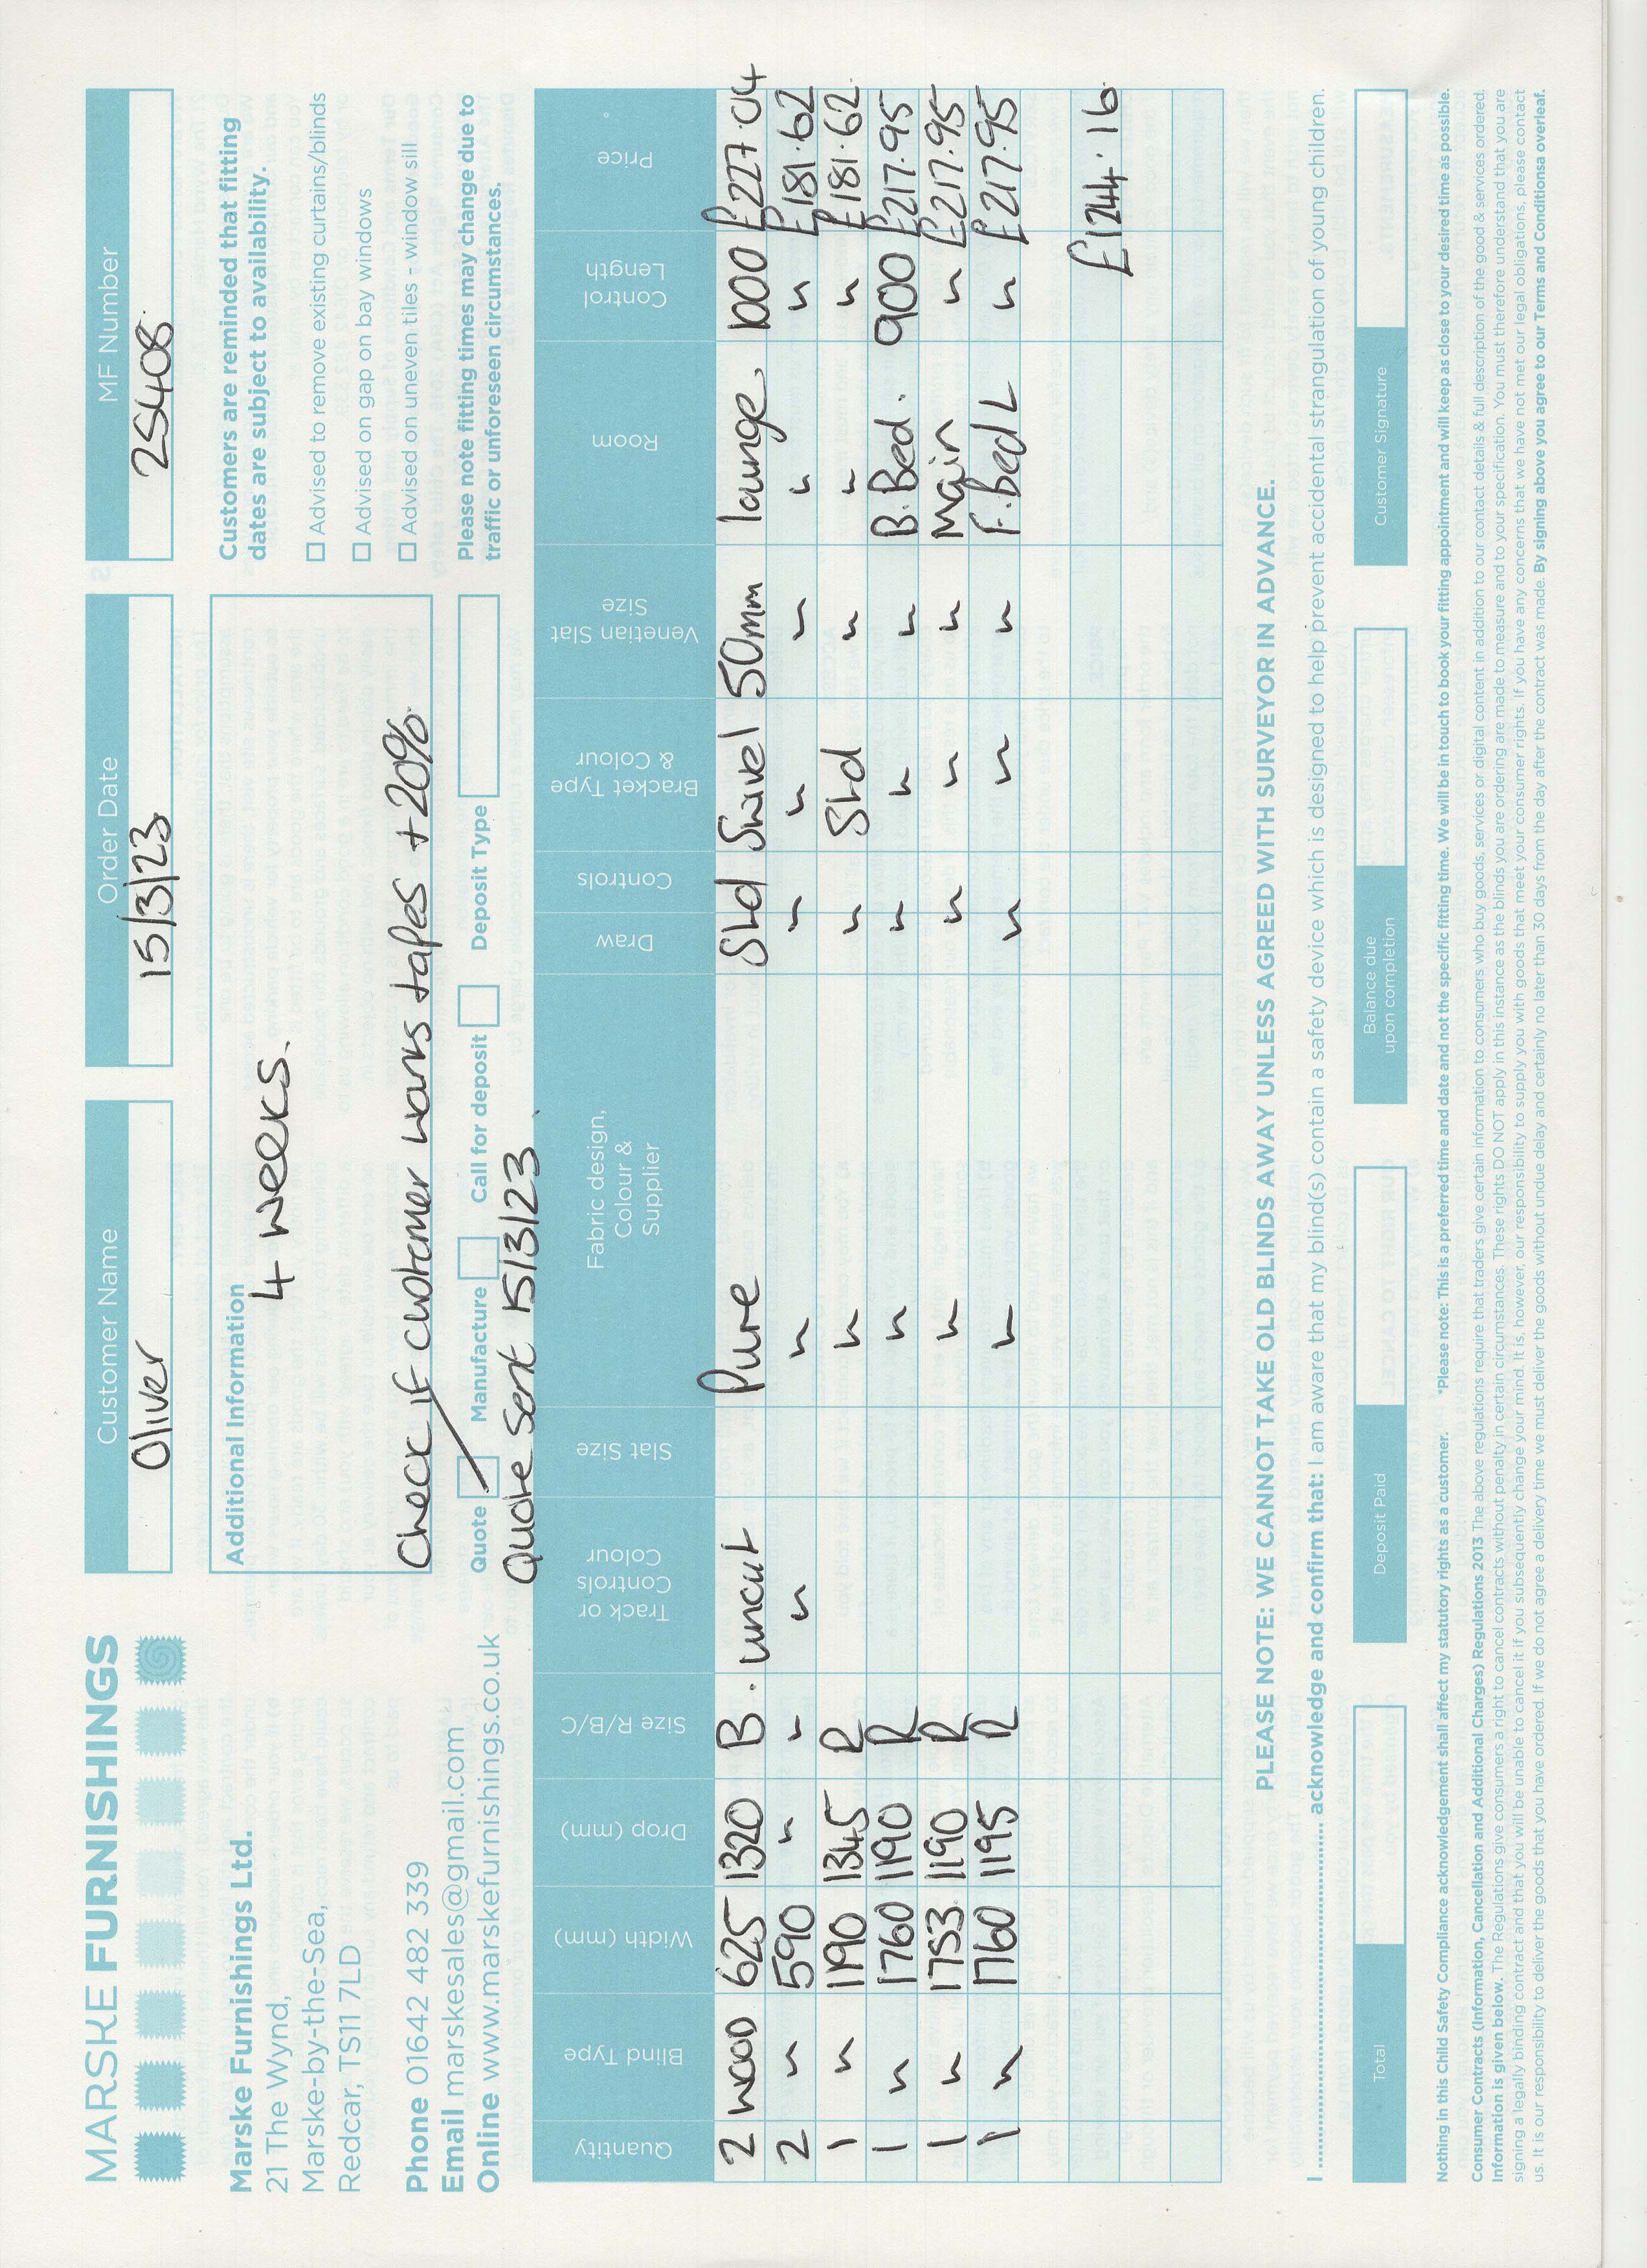 MARSKE FURNISHINGS
Marske Furnishings Ltd.
21 The Wynd,
Marske-by-the-Sea,
Redcar, TS11 7LD
Phone 01642 482 339
Email marskesales@gmail.com
Online www.marskefurnishings.co.uk
Customer Name
Oliver
Order Date
15/3/23
MF Number
25408
Additional Information
4 weeks.
Check if customer wants tapes +20%
Quote Manufacture Call for deposit Deposit Type
Quote Sent 15/3/23
Customers are reminded that fitting
dates are subject to availability.
Advised to remove existing curtains/blinds
Advised on gap on bay windows
Advised on uneven tiles - window sill
Please note fitting times may change due to
traffic or unforeseen circumstances.
Quantity Blind Type Width (mm) Drop (mm) Size R/B/C Track or Controls Colour Slat Size Fabric design, Colour & Supplier Draw Controls Bracket Type & Colour Venetian Slat Size Room Control Length Price
2 wood 625 1320 B. uncut Pure Std Swivel 50mm lounge, 1000 £227.04
2 " 590 " " " " " " " " " £181.62
1 " 1190 1345 R " " Std " " " £181.62
1 " 1760 1190 R " " " " B.Bed. 900 £217.95
1 " 1753 1190 R " " " " Main " £217.95
1 " 1760 1195 R " " " " F.bed L " £217.95
£1244.16
PLEASE NOTE: WE CANNOT TAKE OLD BLINDS AWAY UNLESS AGREED WITH SURVEYOR IN ADVANCE.
I .......... acknowledge and confirm that: I am aware that my blind(s) contain a safety device which is designed to help prevent accidental strangulation of young children.
Total Deposit Paid Balance due upon completion Customer Signature
Nothing in this Child Safety Compliance acknowledgement shall affect my statutory rights as a customer. *Please note: This is a preferred time and date and not the specific fitting time. We will be in touch to book your fitting appointment and will keep as close to your desired time as possible.
Consumer Contracts (Information, Cancellation and Additional Charges) Regulations 2013 The above regulations require that traders give certain information to consumers who buy goods, services or digital content in addition to our contact details & full description of the good & services ordered.
Information is given below. The Regulations give consumers a right to cancel contracts without penalty in certain circumstances. These rights DO NOT apply in this instance as the blinds you are ordering are made to measure and to your specification. You must therefore understand that you are
signing a legally binding contract and that you will be unable to cancel it if you subsequently change your mind. It is, however, our responsibility to supply you with goods that meet your consumer rights. If you have any concerns that we have not met our legal obligations, please contact
us. It is our responsibility to deliver the goods that you have ordered. If we do not agree a delivery time we must deliver the goods without undue delay and certainly no later than 30 days from the day after the contract was made. By signing above you agree to our Terms and Conditionsa overleaf.